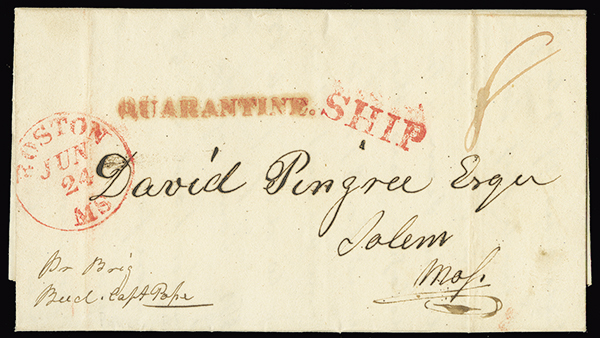 QUARANTINE. SHIP 8
BOSTON
JUN
24
MS
David Pingree Esqr
Salem
Mas.
Pr Brig
Capt Pope